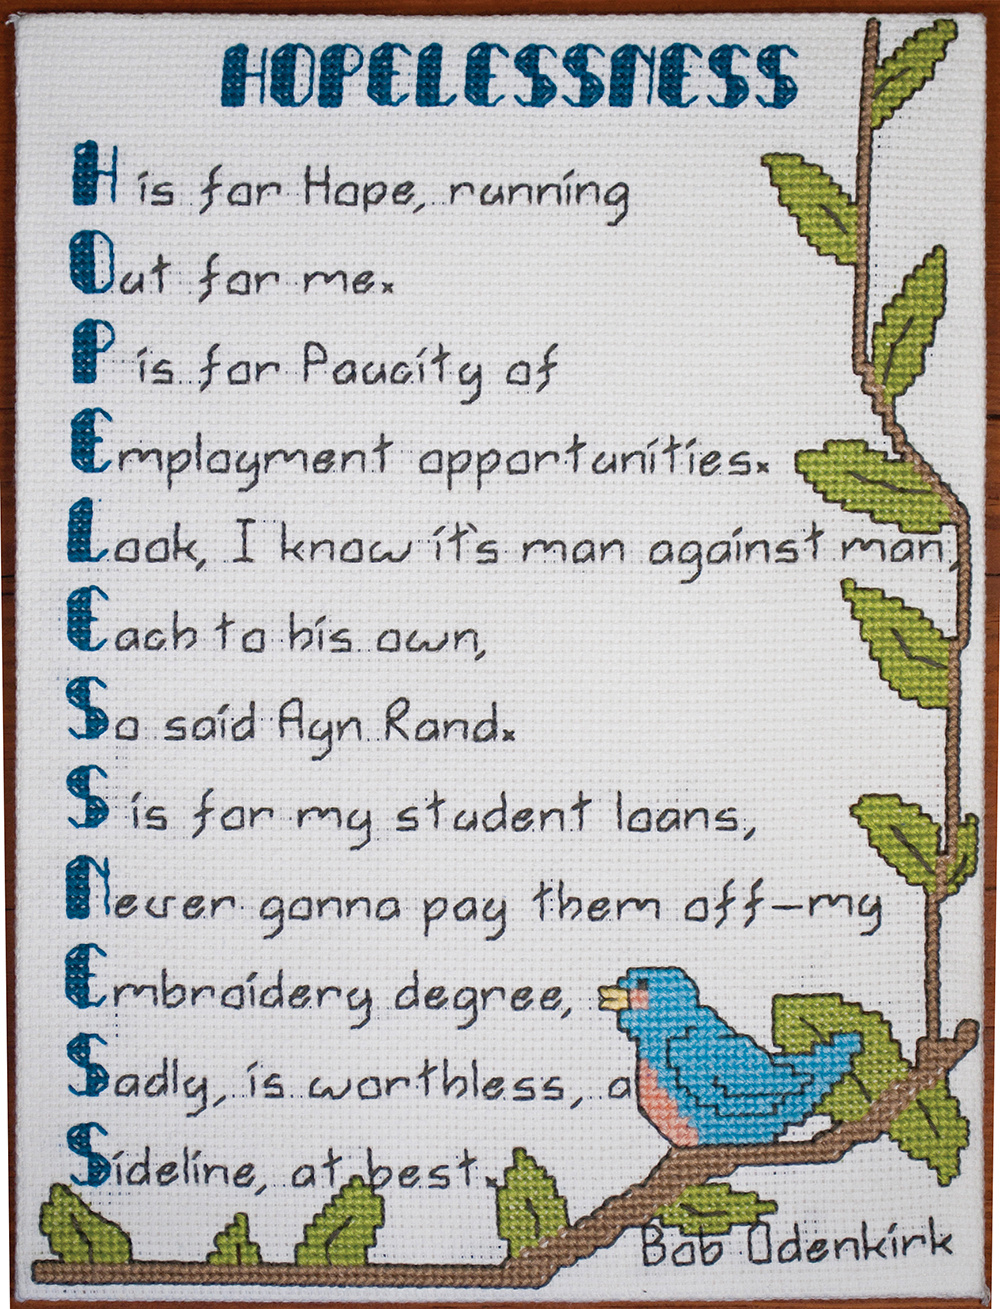 HOPELESSNESS
H is for Hope, running
Out for me.
P is for Paucity of
Employment opportunities.
Look, I know it's man against man,
Each to his own,
So said Ayn Rand.
S is for my student loans,
Never gonna pay them off—my
Embroidery degree,
Sadly, is worthless, a
Sideline, at best.
Bob Odenkirk